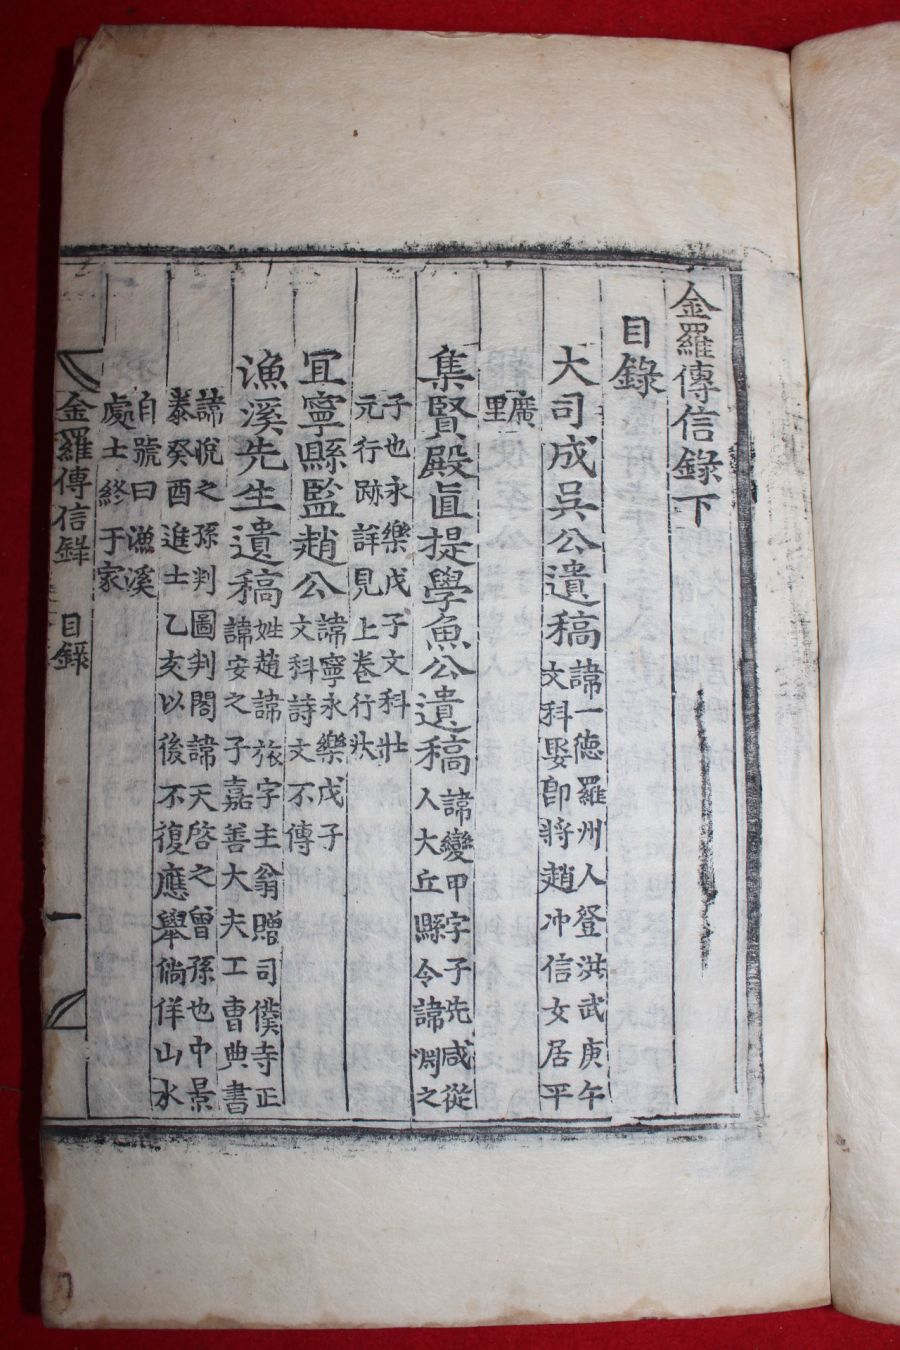 金羅傳信錄下
目錄
大司成吳公遺稿 諱一德羅州人登洪武庚午
文科娶郎將趙冲信女居平
廣
里
集賢殿直提學魚公遺稿 諱變甲字子先咸從
人大丘縣令諱淵之
子也永樂戊子文科壯
元行跡詳見上卷行狀
宜寧縣監趙公 諱寧永樂戊子
文科詩文不傳
漁溪先生遺稿 姓趙諱旅字主翁贈司僕寺正
諱安之子嘉善大夫工曹典書
諱悅之孫判圖判閣諱天啓之曾孫也中景
泰癸酉進士乙亥以後不復應擧徜徉山水
自號曰漁溪
處士終于家
金羅傳信錄 目錄 一